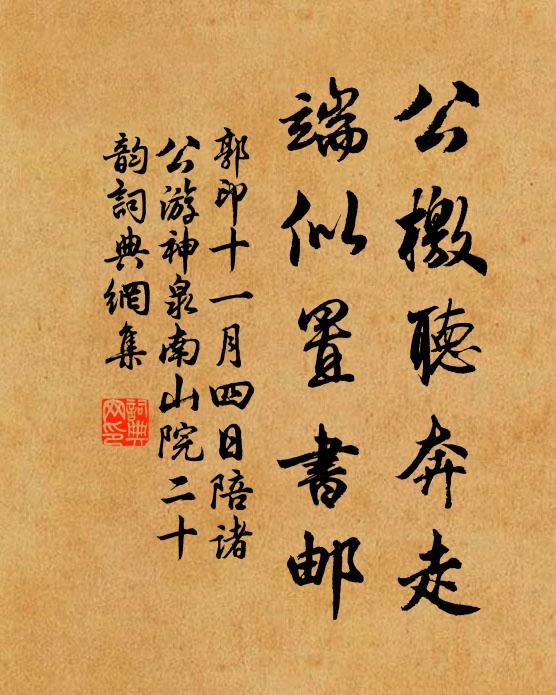 公檄聽奔走
端似置書邮
郭印十一月四日陪諸
公游神泉南山院二十
韵詞典網集
詞典
网印